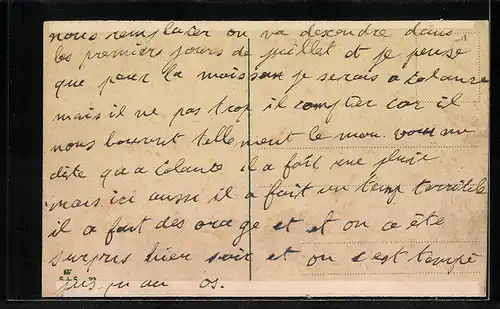 nous remplacer on va descendre dans
les premiers jours de juillet et je pense
que pour la moisson je serais a Colance
mais il ne pas trop il compter car il
nous bourent tellement le mou. vous me
dite qu a Colance il a fait une pluie
mais ici aussi il a fait un temp terrible
il a fait des orage et et on a ete
surpris hier soir et on c est tempé
jus-qu au os.